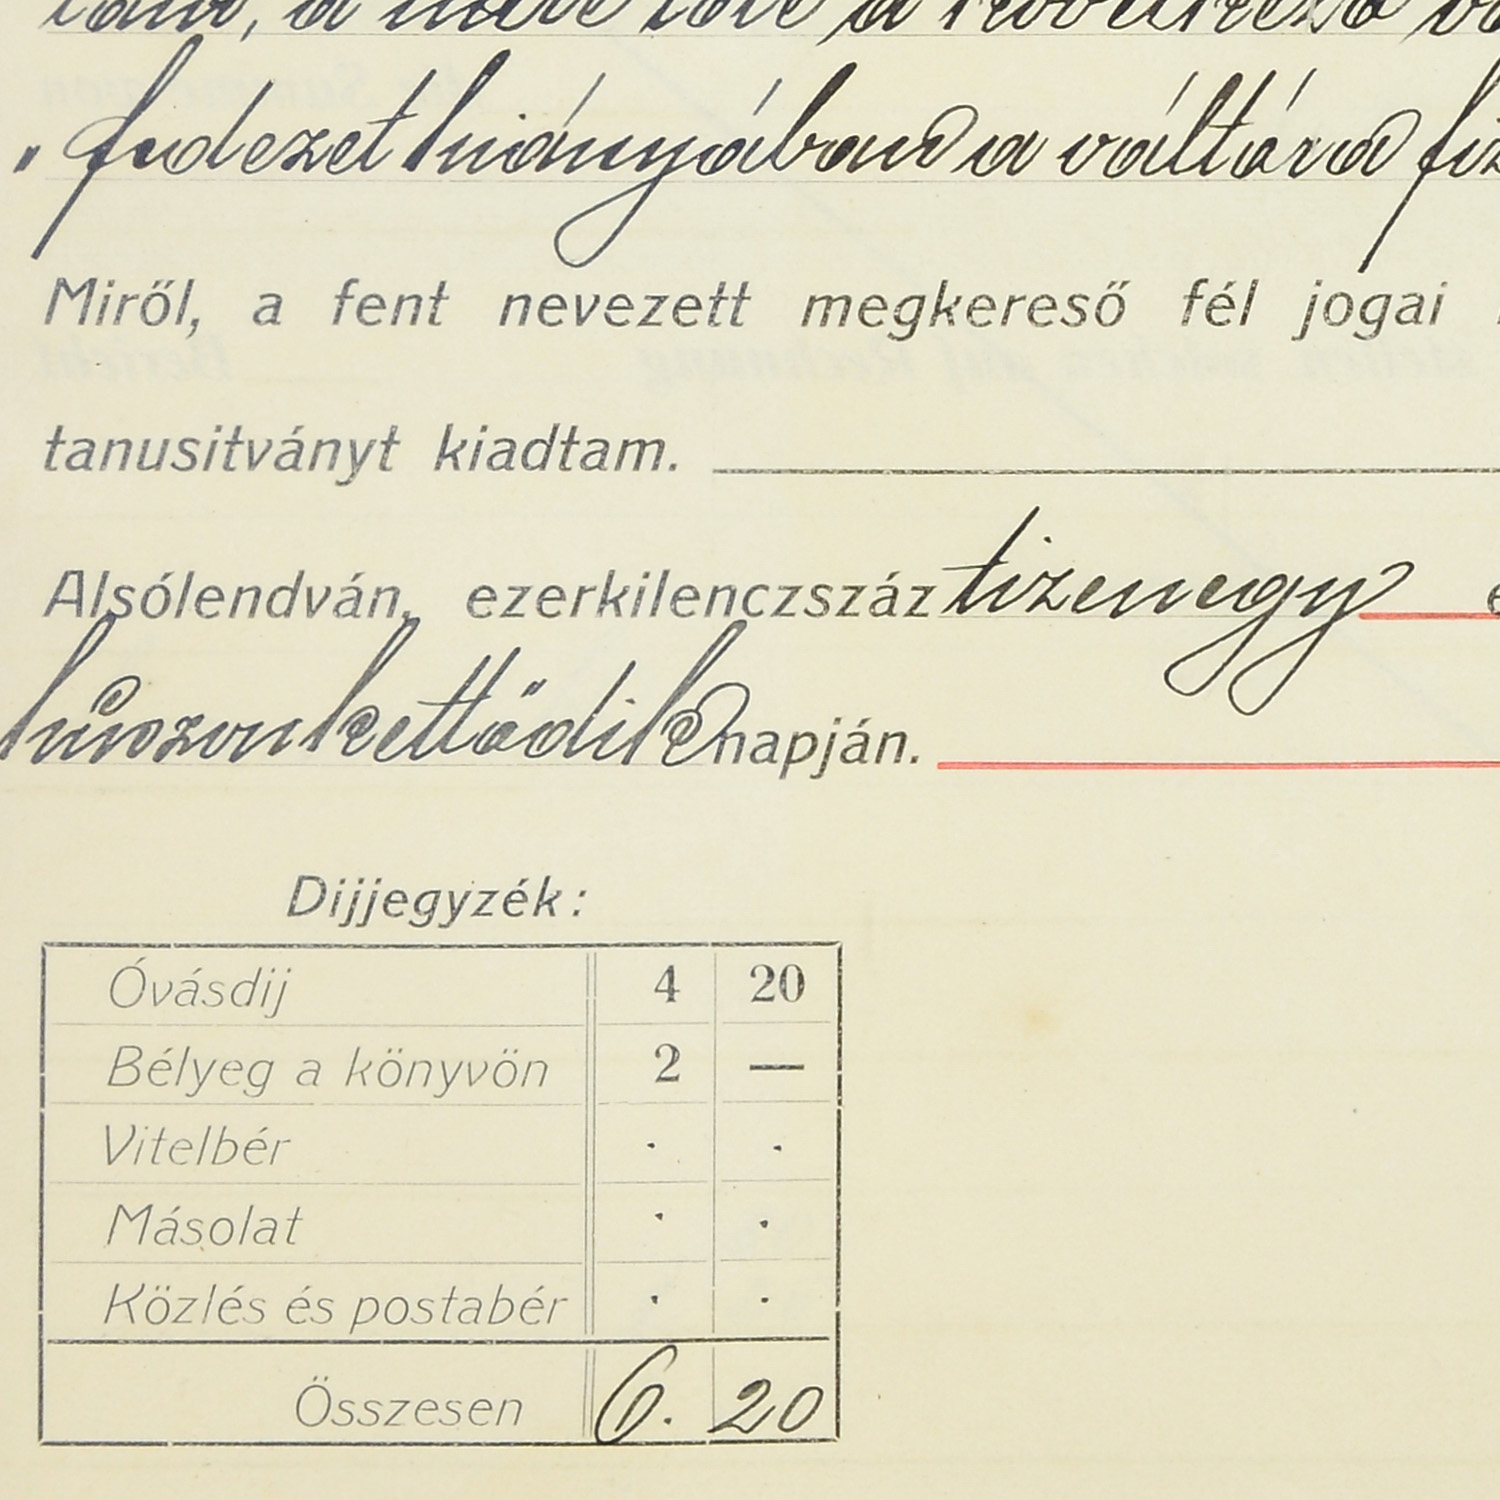 a
„ fedezet hiányában a váltóra
Miről, a fent nevezett megkereső fél jogai
tanusitványt kiadtam.
Alsólendván, ezerkilenczszáz tizenegy
húszonkettődik napján.
Dijjegyzék:
Óvásdij 4 20
Bélyeg a könyvön 2 —
Vitelbér . .
Másolat . .
Közlés és postabér . .
Összesen 6. 20